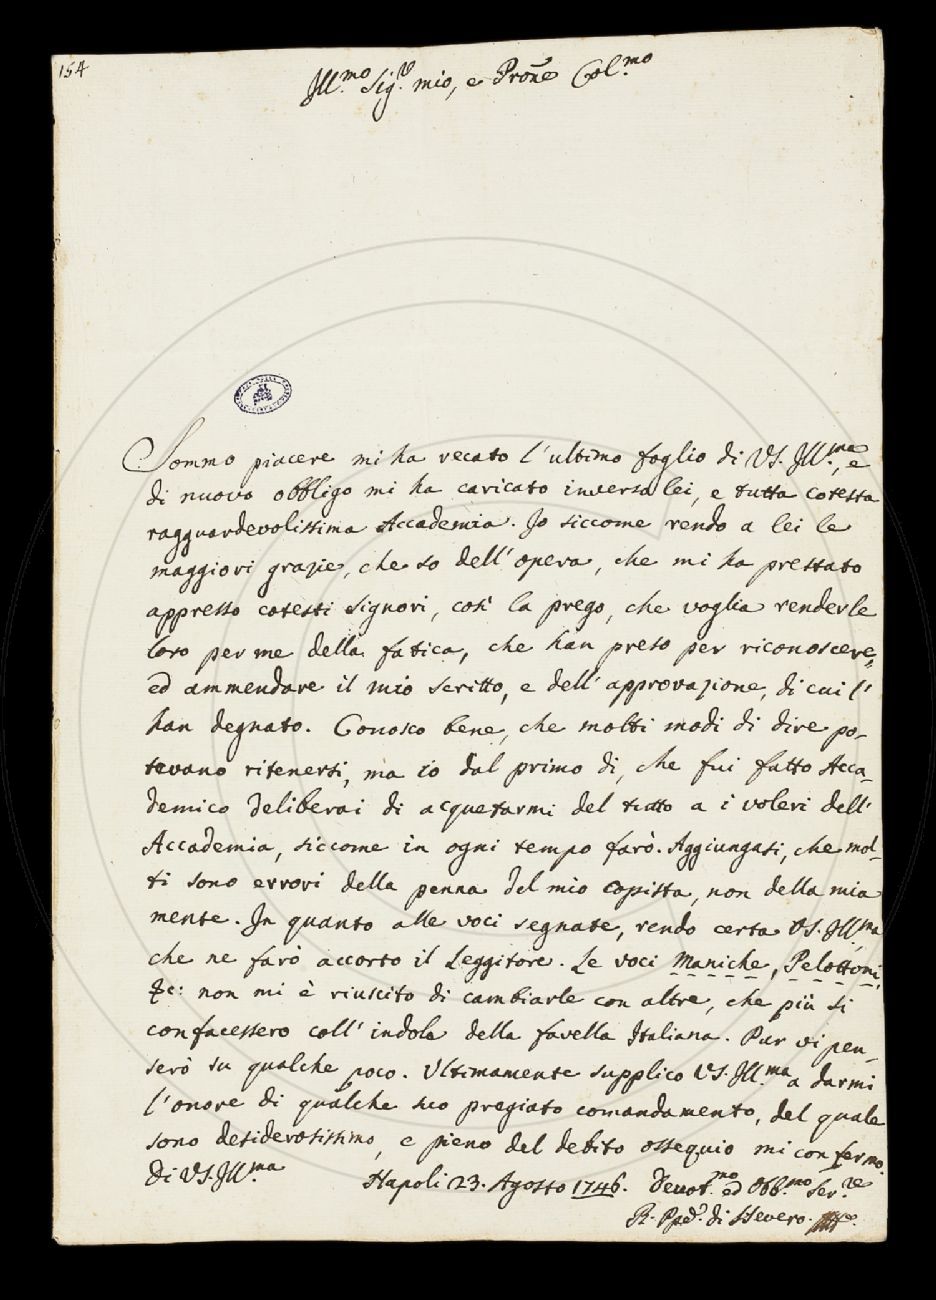 154
Ill.mo Sig.r mio, e Prone Col.mo
Sommo piacere mi ha recato l'ultimo foglio di VS. Ill.ma, e
di nuovo obbligo mi ha caricato inverso lei, e tutta cotesta
ragguardevolissima Accademia. Io siccome rendo a lei le
maggiori grazie, che so dell'opera, che mi ha prestato
appresso cotesti signori, così la prego, che voglia renderle
loro per me della fatica, che han preso per riconoscere,
ed ammendare il mio scritto, e dell'approvazione, di cui l'
han degnato. Conosco bene, che molti modi di dire po-
tevano ritenersi, ma io dal primo dì, che fui fatto Acca-
demico deliberai di acquetarmi del tutto a i voleri dell'
Accademia, siccome in ogni tempo farò. Aggiungasi, che mol-
ti sono errori della penna del mio copista, non della mia
mente. In quanto alle voci segnate, rendo certa VS. Ill.ma
che ne farò accorto il Leggitore. Le voci Maniche, Pelottoni,
&c: non mi è riuscito di cambiarle con altre, che più si
confacessero coll'indole della favella Italiana. Pur vi pen-
serò su qualche poco. Ultimamente supplico VS. Ill.ma a darmi
l'onore di qualche suo pregiato comandamento, del quale
sono desiderosissimo, e pieno del debito ossequio mi confermo.
Di VS. Ill.ma Napoli 23. Agosto 1746. Devot.mo ed Obb.mo Ser.re
di SSevero.